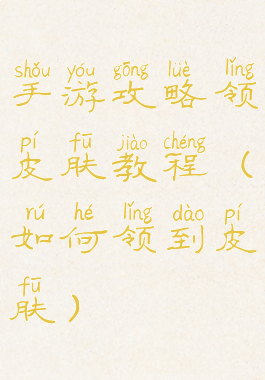 shǒu yóu gōng lüè lǐng
手游攻略领
pí fū jiào chéng
皮肤教程（
rú hé lǐng dào pí
如何领到皮
fū
肤）